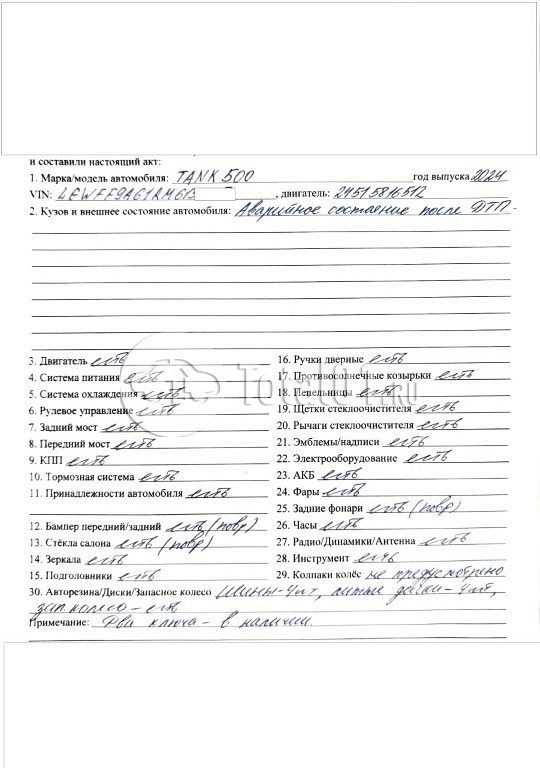 и составили настоящий акт:
1. Марка/модель автомобиля: TANK 500 год выпуска 2024
VIN: , двигатель: 24515816512
2. Кузов и внешнее состояние автомобиля: Аварийное состояние после ДТП.-
3. Двигатель есть
4. Система питания есть
5. Система охлаждения есть
6. Рулевое управление есть
7. Задний мост есть
8. Передний мост есть
9. КПП есть
10. Тормозная система есть
11. Принадлежности автомобиля есть
12. Бампер передний/задний есть (повр)
13. Стёкла салона есть (повр)
14. Зеркала есть
15. Подголовники есть
16. Ручки дверные есть
17. Противосолнечные козырьки есть
18. Пепельницы есть
19. Щетки стеклоочистителя есть
20. Рычаги стеклоочистителя есть
21. Эмблемы/надписи есть
22. Электрооборудование есть
23. АКБ есть
24. Фары есть
25. Задние фонари есть (повр)
26. Часы есть
27. Радио/Динамики/Антенна есть
28. Инструмент есть
29. Колпаки колёс не предусмотрено
30. Авторезина/Диски/Запасное колесо Шины-4шт, литые диски-4шт,
зап колесо - есть
Примечание: Два ключа - в наличии.
Total01.RU